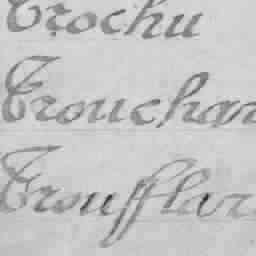 Trochu
Trouchar
Troufflar